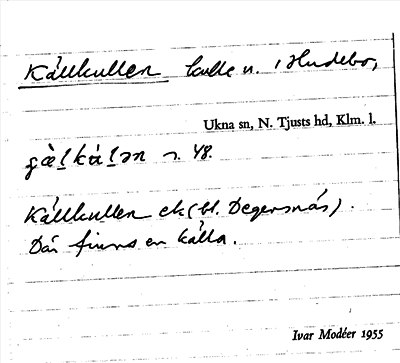 Källkullen kulle n. i Hudebo,
Ukna sn, N. Tjusts hd, Klm. l.
n. 48.
Källkullen ek (bl. Degersnäs).
Där finns en källa.
Ivar Modéer 1955